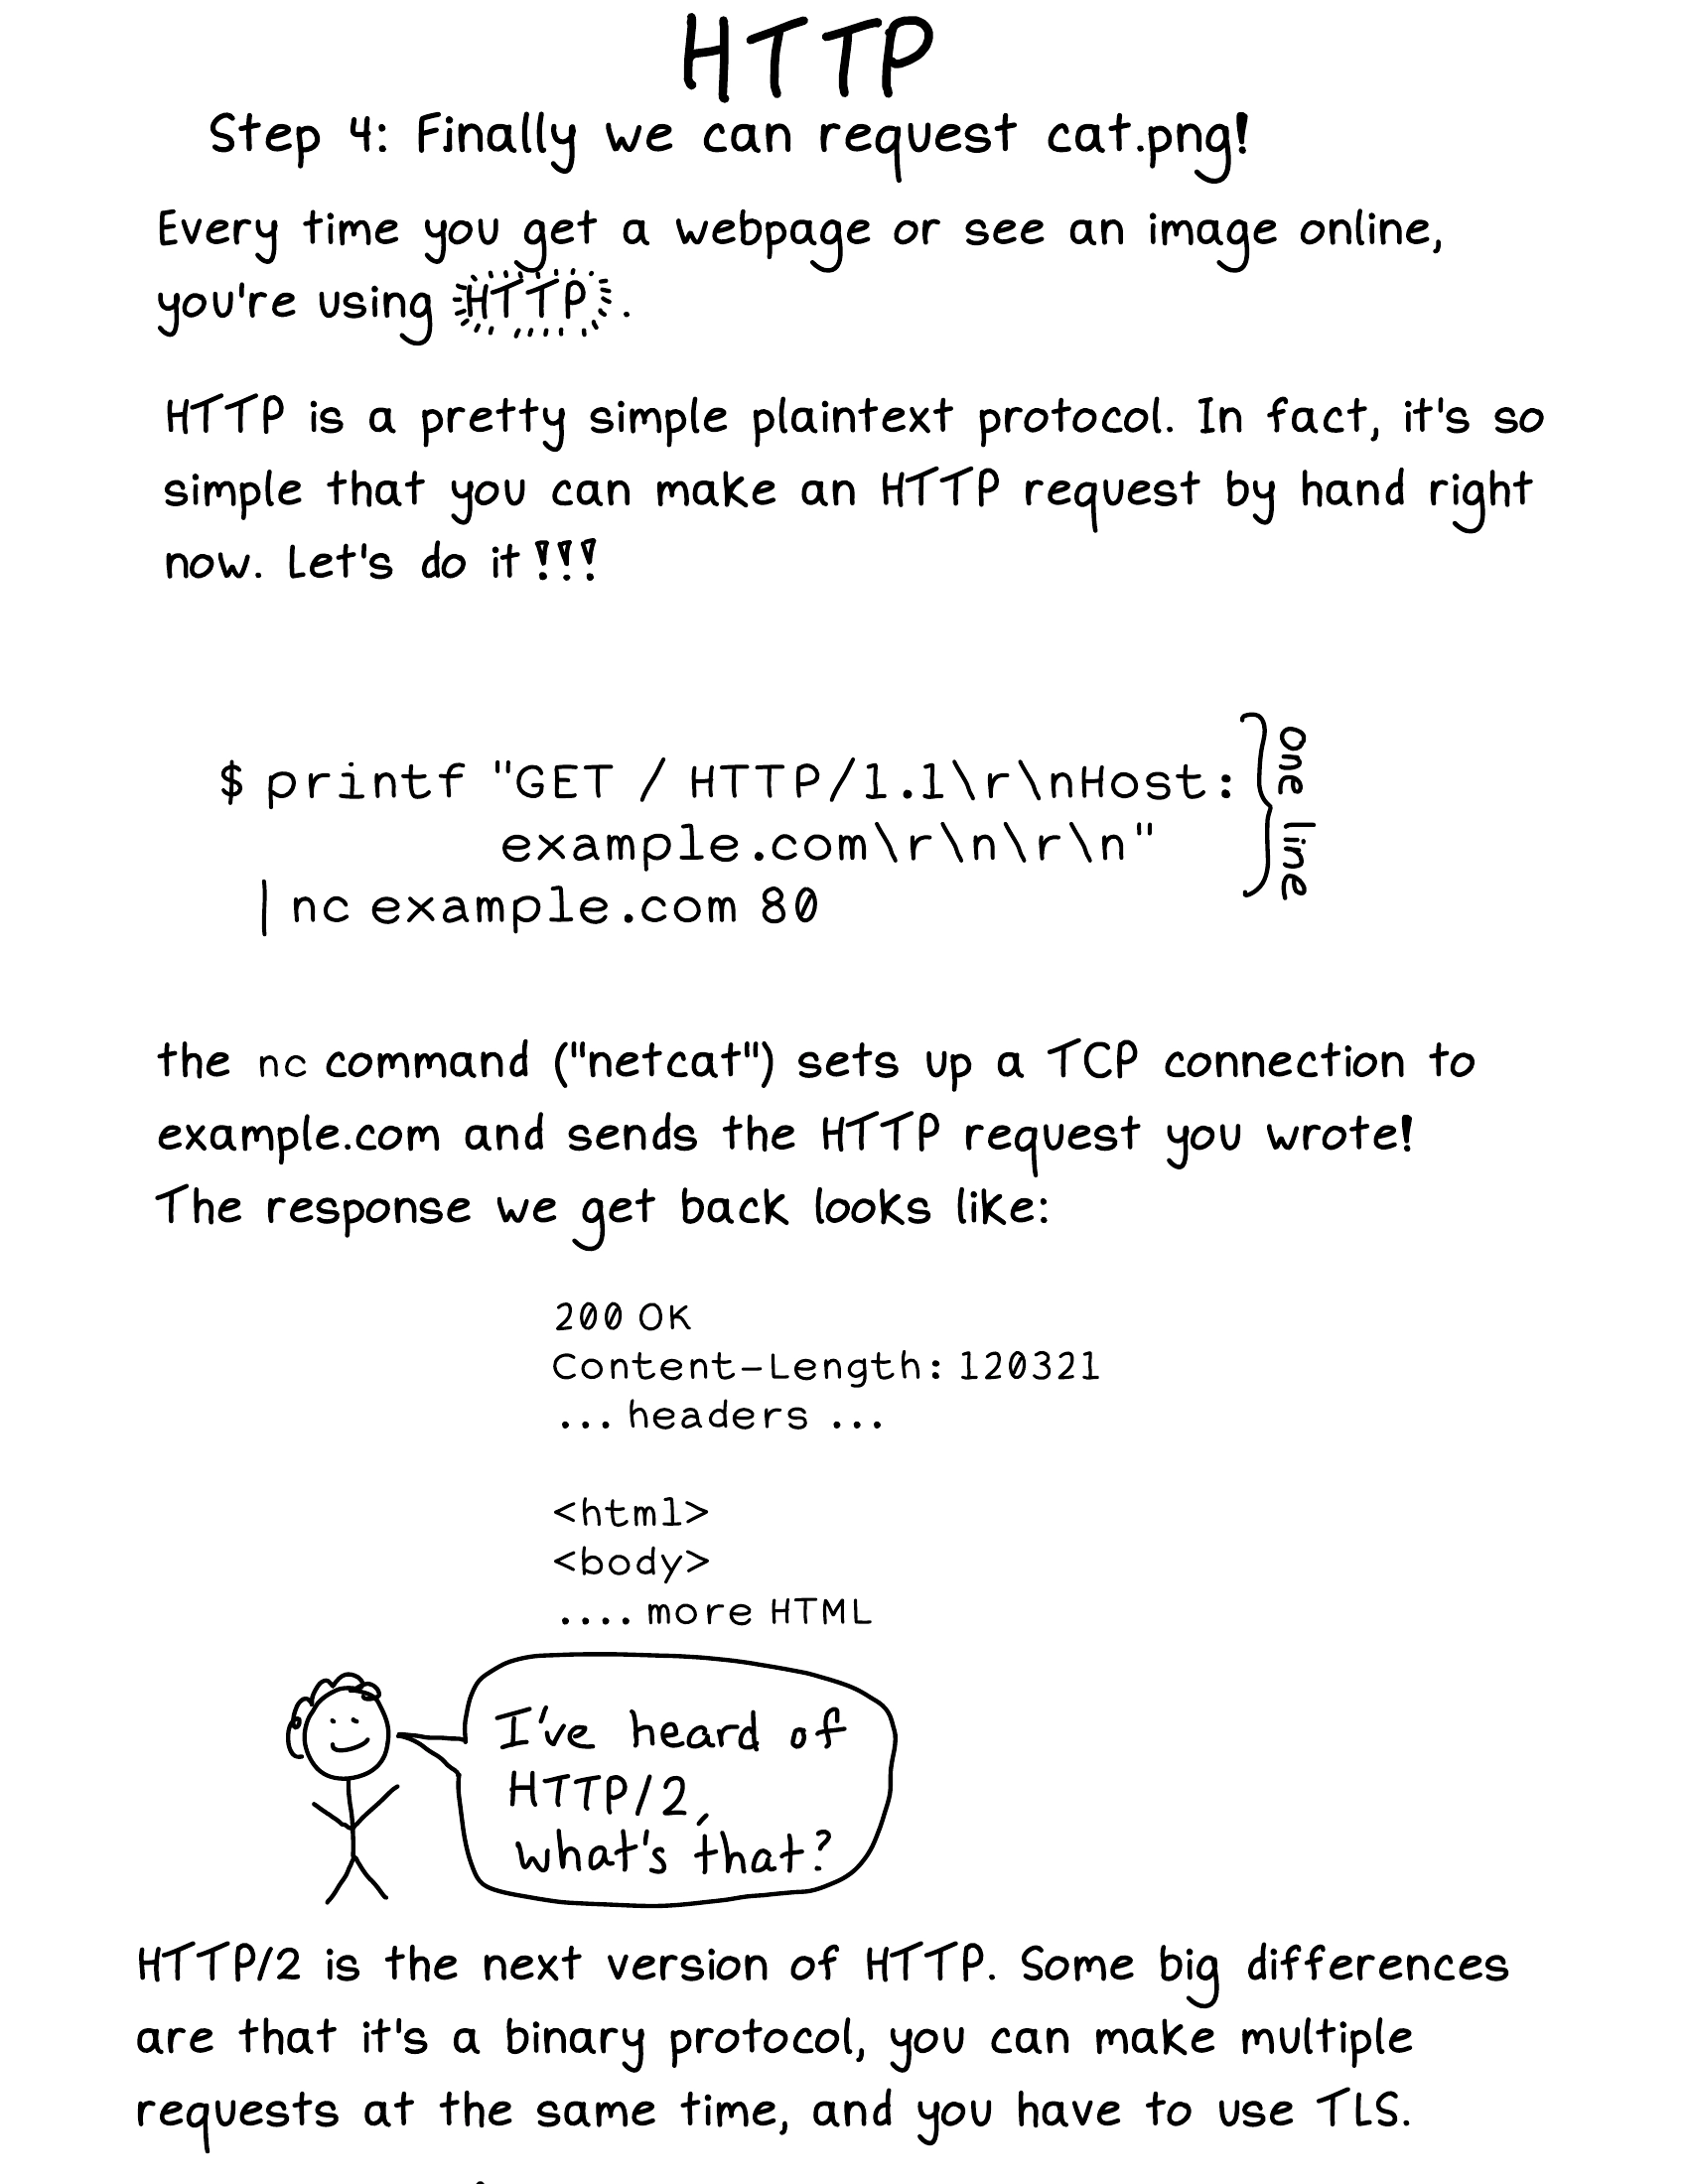 HTTP
Step 4: Finally we can request cat.png!
Every time you get a webpage or see an image online,
you're using HTTP.
HTTP is a pretty simple plaintext protocol. In fact, it's so
simple that you can make an HTTP request by hand right
now. Let's do it!!!
$ printf "GET / HTTP/1.1\r\nHost:
example.com\r\n\r\n"
| nc example.com 80
one line
the nc command ("netcat") sets up a TCP connection to
example.com and sends the HTTP request you wrote!
The response we get back looks like:
200 OK
Content-Length: 120321
... headers ...
<html>
<body>
.... more HTML
I've heard of
HTTP/2,
what's that?
HTTP/2 is the next version of HTTP. Some big differences
are that it's a binary protocol, you can make multiple
requests at the same time, and you have to use TLS.